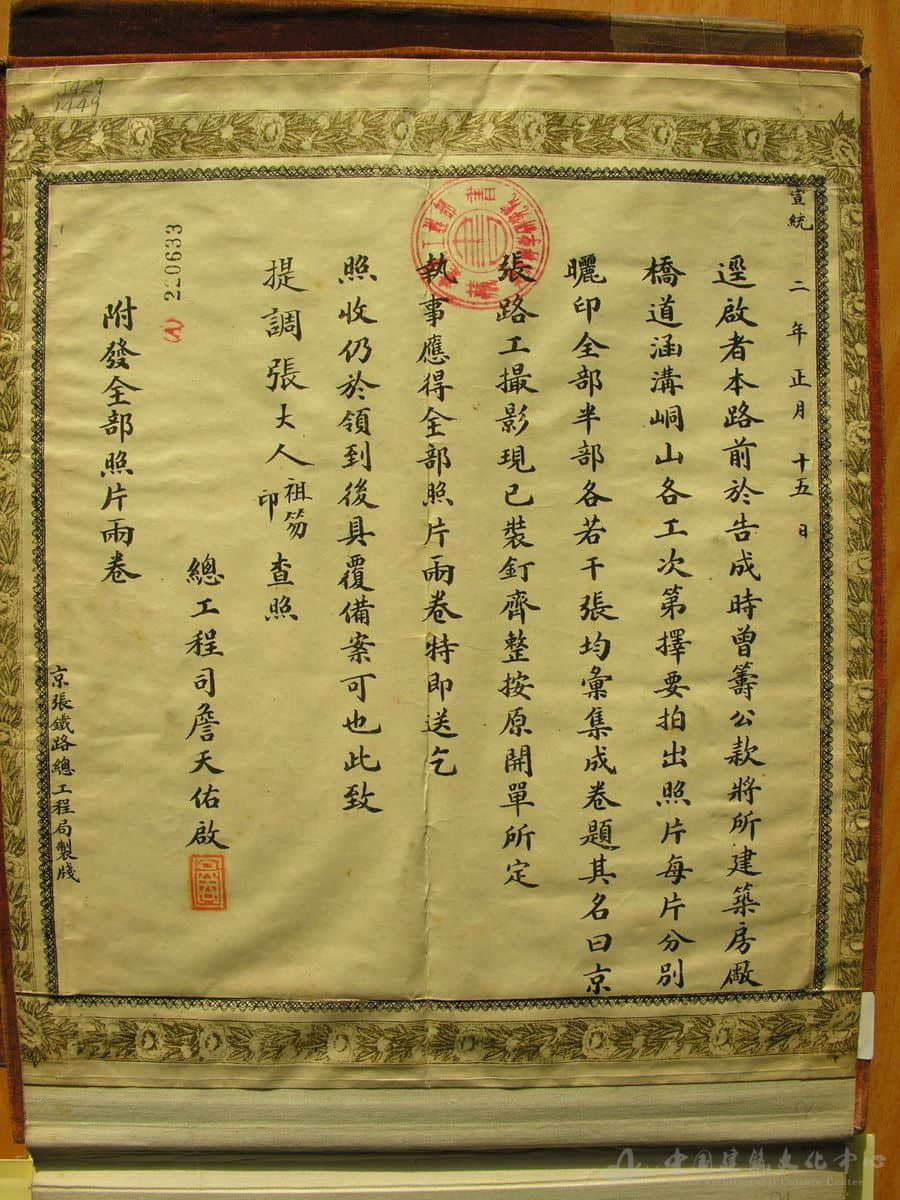 宣統二年正月十五日
逕啟者本路前於告成時曾籌公款將所建築房厰
橋道涵溝峒山各工次第擇要拍出照片每片分別
曬印全部半部各若干張均彙集成卷題其名曰京
張路工撮影現已裝釘齊整按原開單所定
執事應得全部照片兩卷特即送乞
照收仍於領到後具覆備案可也此致
提調張大人祖笏印查照
總工程司詹天佑啟
附發全部照片兩卷
京張鐵路總工程局製牋
(A) 220633
J429
1449
中国建筑文化中心
Architectural Culture Center